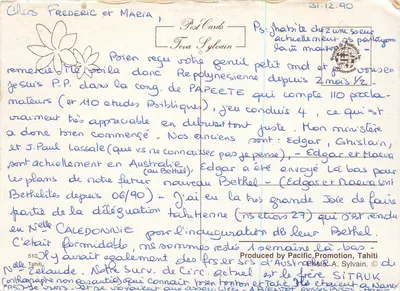 Chers FREDERIC et MARIA,
31-12-90
Post Cards
Teva Sylvain
Ps: J'habite chez une soeur
actuellement, ns partageons
la maison
Bien reçu votre gentil petit mot et je vous
remercie. Me voilà donc Repolynésienne depuis 2 mois 1/2 -
Je suis P.P. dans la cong. de PAPEETE qui compte 110 procla-
mateurs (et 110 études Bibliques), j'en conduis 4, ce qui est
vraiment très appréciable en débutant tout juste. Mon ministère
a donc bien commencé. Nos anciens sont : Edgar, Ghislain,
et J. Paul Lassale (que vs ne connaissez pas je pense), - Edgar et Maeva
sont actuellement en Australie, (au Bethel) Edgar a été envoyé là bas pour
les plans de notre futur nouveau Bethel - (Edgar et Maeva sont
Bethelites depuis 06/90) - J'ai eu la très grande Joie de faire
partie de la délégation tahitienne (ns étions 27) qui s'est rendu
en Nelle CALEDONIE pour l'inauguration de leur Bethel.
C'était formidable, ns sommes restés 1 semaine là-bas -
Il y avait également des frs et srs d'Australie et de
Nelle Zelande. Notre surv. de Circ. actuel est le frère SITRUK
B.P. 510,
Tahiti,
Produced by Pacific Promotion, Tahiti
A. Sylvain.